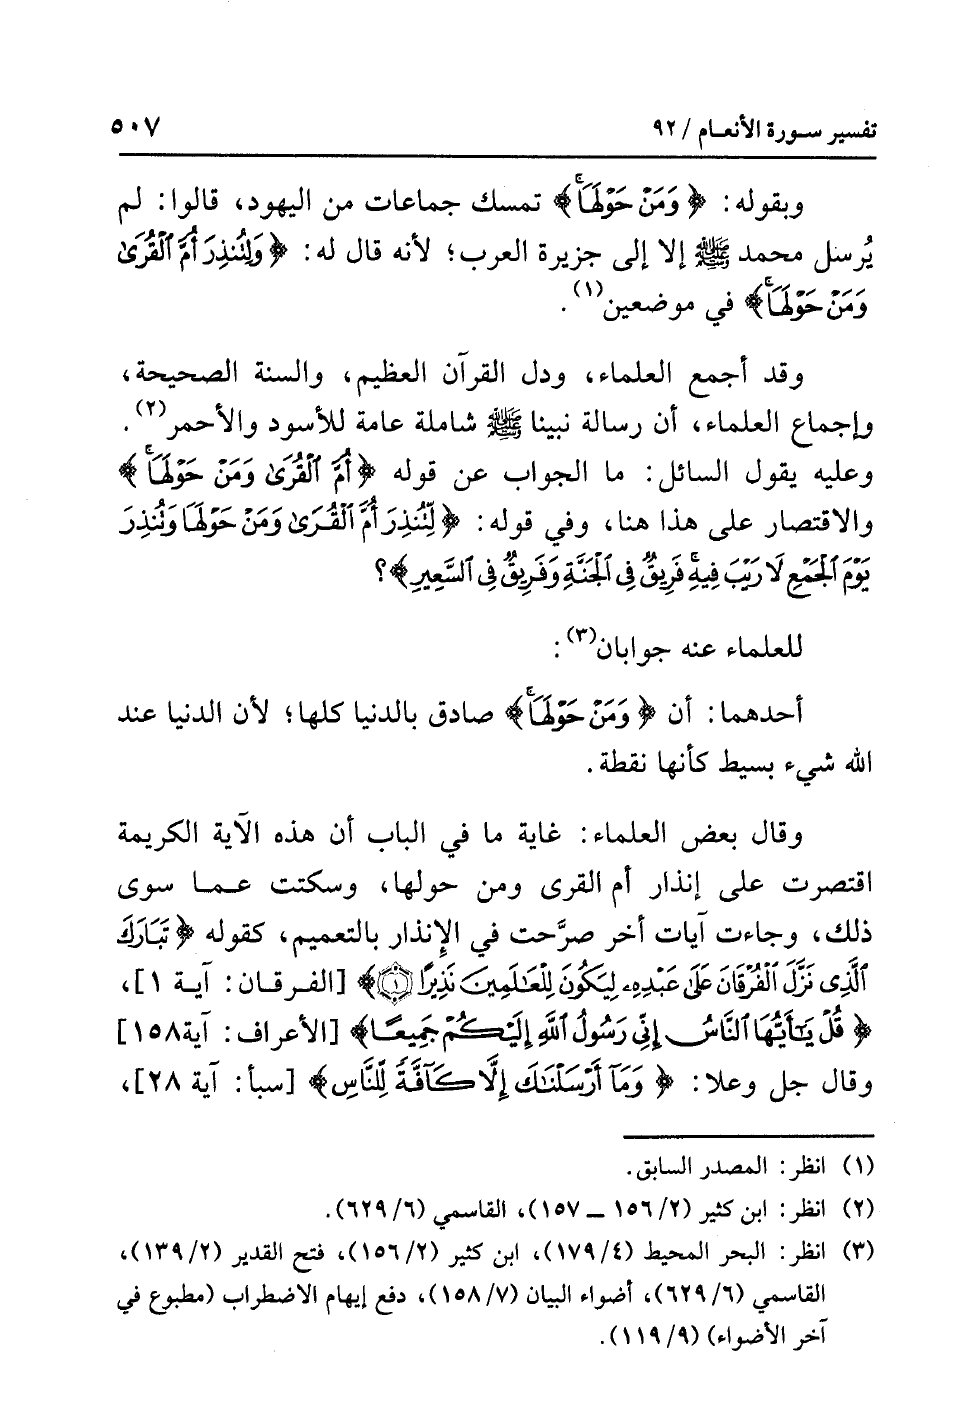 تفسير سورة الأنعام / ٩٢
٥٠٧
وبقوله: ﴿وَمَنْ حَوْلَهَاۚ﴾ تمسك جماعات من اليهود، قالوا: لم
يُرسل محمد ﷺ إلا إلى جزيرة العرب؛ لأنه قال له: ﴿وَلِتُنذِرَ أُمَّ ٱلْقُرَىٰ
وَمَنْ حَوْلَهَاۚ﴾ في موضعين(١).
وقد أجمع العلماء، ودل القرآن العظيم، والسنة الصحيحة،
وإجماع العلماء، أن رسالة نبينا ﷺ شاملة عامة للأسود والأحمر(٢).
وعليه يقول السائل: ما الجواب عن قوله ﴿أُمَّ ٱلْقُرَىٰ وَمَنْ حَوْلَهَاۚ﴾
والاقتصار على هذا هنا، وفي قوله: ﴿لِّتُنذِرَ أُمَّ ٱلْقُرَىٰ وَمَنْ حَوْلَهَا وَتُنذِرَ
يَوْمَ ٱلْجَمْعِ لَا رَيْبَ فِيهِۚ فَرِيقٌ فِى ٱلْجَنَّةِ وَفَرِيقٌ فِى ٱلسَّعِيرِ﴾؟
للعلماء عنه جوابان(٣):
أحدهما: أن ﴿وَمَنْ حَوْلَهَاۚ﴾ صادق بالدنيا كلها؛ لأن الدنيا عند
الله شيء بسيط كأنها نقطة.
وقال بعض العلماء: غاية ما في الباب أن هذه الآية الكريمة
اقتصرت على إنذار أم القرى ومن حولها، وسكتت عما سوى
ذلك، وجاءت آيات أخر صرَّحت في الإنذار بالتعميم، كقوله ﴿تَبَارَكَ
ٱلَّذِى نَزَّلَ ٱلْفُرْقَانَ عَلَىٰ عَبْدِهِۦ لِيَكُونَ لِلْعَٰلَمِينَ نَذِيرًا ۝١﴾ [الفرقان: آية ١]،
﴿قُلْ يَٰٓأَيُّهَا ٱلنَّاسُ إِنِّى رَسُولُ ٱللَّهِ إِلَيْكُمْ جَمِيعًا﴾ [الأعراف: آية١٥٨]
وقال جل وعلا: ﴿وَمَآ أَرْسَلْنَٰكَ إِلَّا كَآفَّةً لِّلنَّاسِ﴾ [سبأ: آية ٢٨]،
(١) انظر: المصدر السابق.
(٢) انظر: ابن كثير (٢/ ١٥٦ ــ ١٥٧)، القاسمي (٦/ ٦٢٩).
(٣) انظر: البحر المحيط (٤/ ١٧٩)، ابن كثير (٢/ ١٥٦)، فتح القدير (٢/ ١٣٩)،
القاسمي (٦/ ٦٢٩)، أضواء البيان (٧/ ١٥٨)، دفع إيهام الاضطراب (مطبوع في
آخر الأضواء) (٩/ ١١٩).